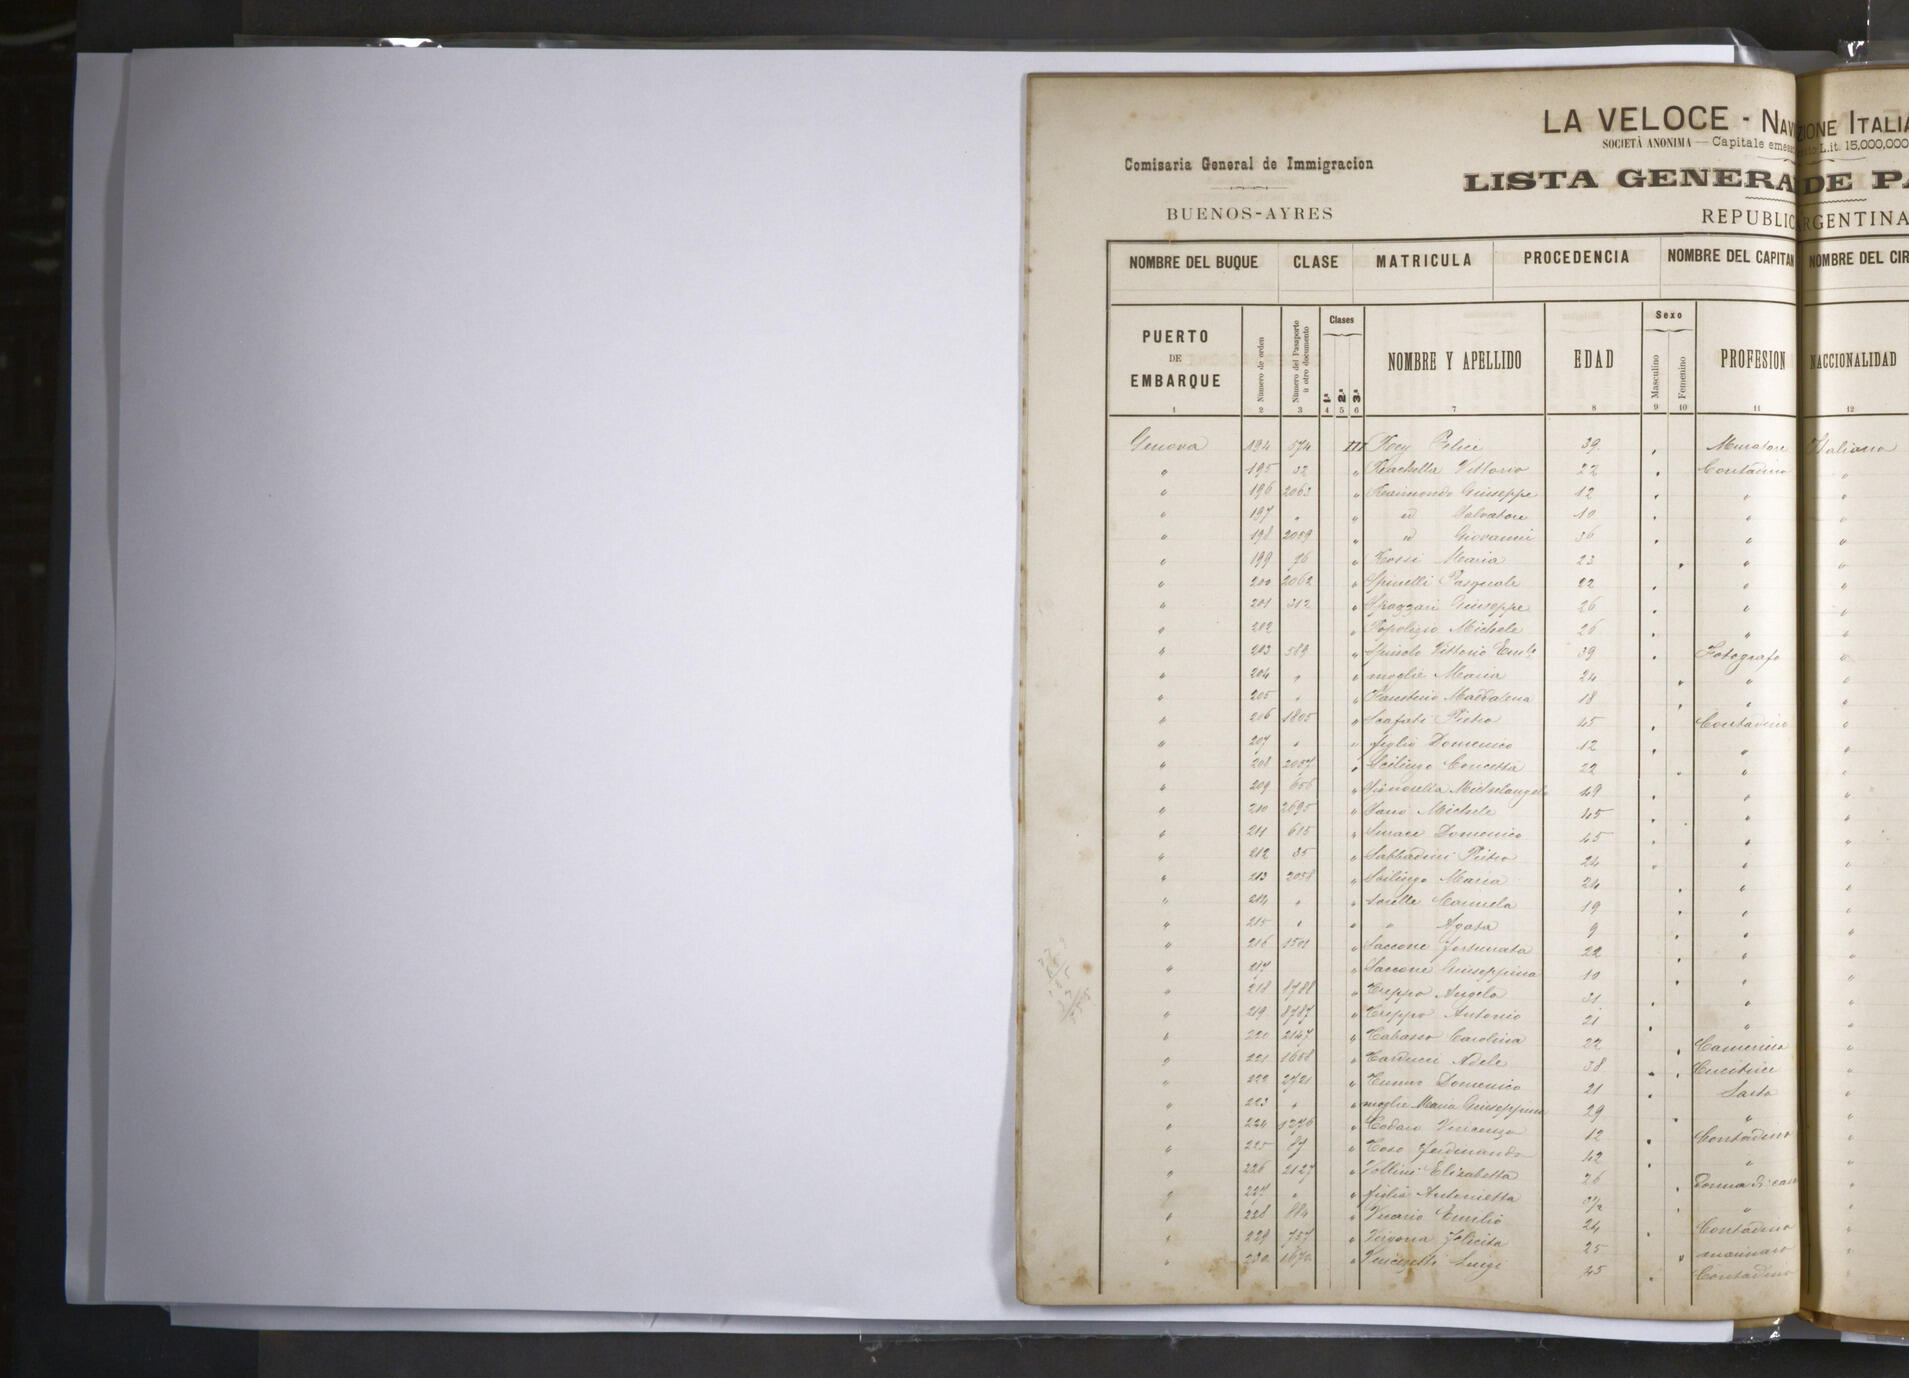 LA VELOCE - NAVIZIONE ITALIA
SOCIETÀ ANONIMA — Capitale emesso L.it. 15,000,000
Comisaria General de Immigracion
LISTA GENERA DE PA
BUENOS-AYRES
REPUBLIC ARGENTINA
NOMBRE DEL BUQUE CLASE MATRICULA PROCEDENCIA NOMBRE DEL CAPITAN NOMBRE DEL CIR
PUERTO DE EMBARQUE Número de orden Número del Pasaporte ú otro documento Clases 1ª 2ª 3ª NOMBRE Y APELLIDO EDAD Sexo Masculino Femenino PROFESION NACCIONALIDAD
1 2 3 4 5 6 7 8 9 10 11 12
Genova 194 574 III Felici 39 Muratore Italiana
" 195 32 " Vittorio 22 Contadino "
" 196 2063 " Raimondo Giuseppe 12 " "
" 197 " " id Salvatore 10 " "
" 198 2059 " id Giovanni 36 " "
" 199 96 " Rossi Maria 23 " "
" 200 2062 " Spinelli Pasquale 22 " "
" 201 312 " Giuseppe 26 " "
" 202 " Popolizio Michele 26 " "
" 203 589 " Vittorio 39 Fotografo "
" 204 " " moglie Maria 24 " "
" 205 " " Faustino Maddalena 18 " "
" 206 1805 " Scafati Pietro 45 Contadino "
" 207 " " figlio Domenico 12 " "
" 208 2057 " Scilingo Concetta 22 " "
" 209 656 " Michelangelo 49 " "
" 210 2695 " Michele 45 " "
" 211 615 " Surace Domenico 45 " "
" 212 35 " Sabbadini Pietro 24 " "
" 213 2058 " Scilingo Maria 24 " "
" 214 " " sorelle Carmela 19 " "
" 215 " " " Agata 9 " "
" 216 1501 " Saccone Fortunata 22 " "
" 217 " Saccone Giuseppina 10 " "
" 218 8788 " Treppo Angelo 31 " "
" 219 8787 " Treppo Antonio 21 " "
" 220 2147 " Tabasso Carolina 22 "
" 221 1658 " Carducci Adele 38 Cucitrice "
" 222 2721 " Domenico 21 Sarto "
" 223 " " moglie Maria Giuseppina 29 " "
" 224 1276 " Todaro Vincenzo 12 Contadino "
" 225 87 " Toso Ferdinando 42 " "
" 226 2127 " Vollini Elisabetta 26 Donna di casa "
" 227 " " figlia Antonietta " "
" 228 884 " Vicario Emilio 24 Contadino "
" 229 757 " Felicita 25 marinaro "
" 230 1670 " Luigi 45 Contadino "